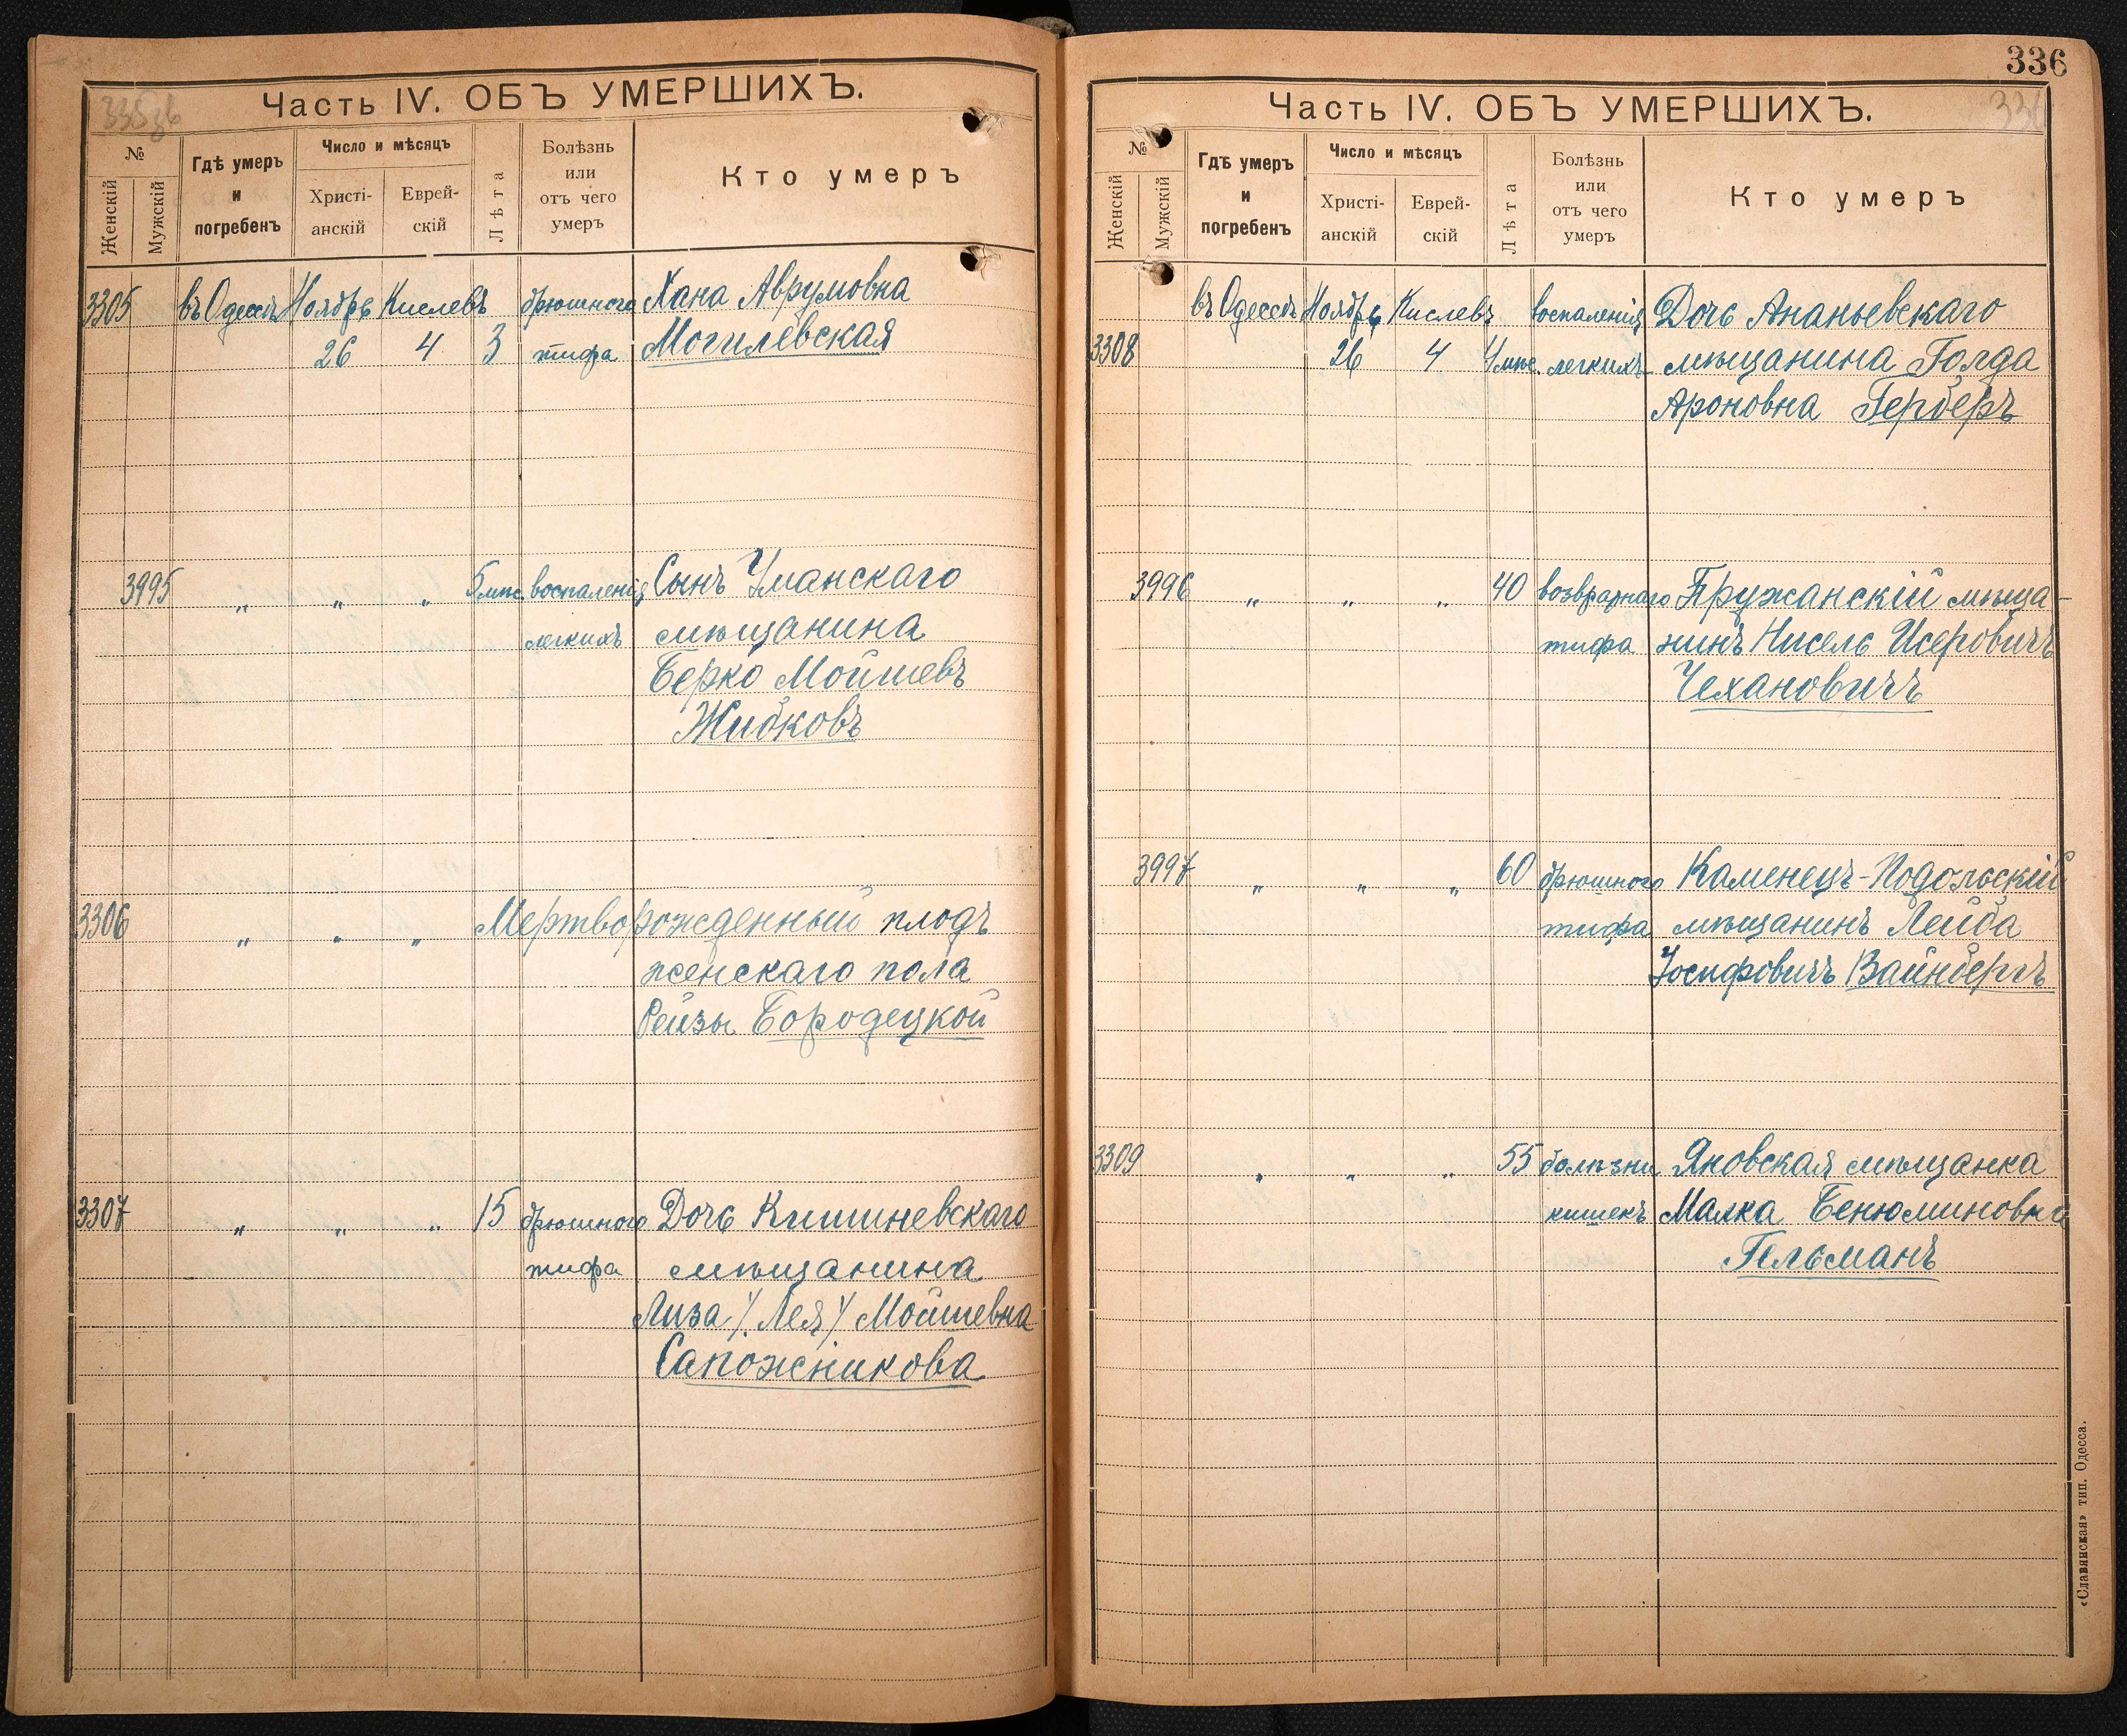 335зв
Часть IV. ОБЪ УМЕРШИХЪ.
№
Женскій
Мужскій
Гдѣ умеръ
и
погребенъ
Число и мѣсяцъ
Христі-
анскій
Еврей-
скій
Лѣта
Болѣзнь
или
отъ чего
умеръ
Кто умеръ
3305 въ Одессѣ Ноябрь Кислевъ брюшного Хана Аврумовна
26 4 3 тифа Могилевская
3995 „ „ „ 5 мѣс. воспаленія Сынъ Уманскаго
легкихъ мѣщанина
Берко Мойшевъ
Жибковъ
3306 „ „ „ Мертворожденный плодъ
женскаго пола
Рейзы Бородецкой
3307 „ „ „ 15 брюшного Дочь Кишиневскаго
тифа мѣщанина
Лиза /Лея/ Мойшевна
Сапожникова
336
336
Часть IV. ОБЪ УМЕРШИХЪ.
№
Женскій
Мужскій
Гдѣ умеръ
и
погребенъ
Число и мѣсяцъ
Христі-
анскій
Еврей-
скій
Лѣта
Болѣзнь
или
отъ чего
умеръ
Кто умеръ
въ Одессѣ Ноябрь Кислевъ воспаленія Дочь Ананьевскаго
3308 26 4 4 мѣс. легкихъ мѣщанина Голда
Ароновна Герберъ
3996 „ „ „ 40 возвратнаго Пружанскій мѣща-
тифа нинъ Нисель Исеровичъ
Чехановичъ
3997 „ „ „ 60 брюшного Каменецъ-Подольскій
тифа мѣщанинъ Лейба
Іосифовичъ Вайнбергъ
3309 „ „ „ 55 болѣзни Яновская мѣщанка
кишекъ Малка Бенюминовна
Гельманъ
«Славянская» тип. Одесса.